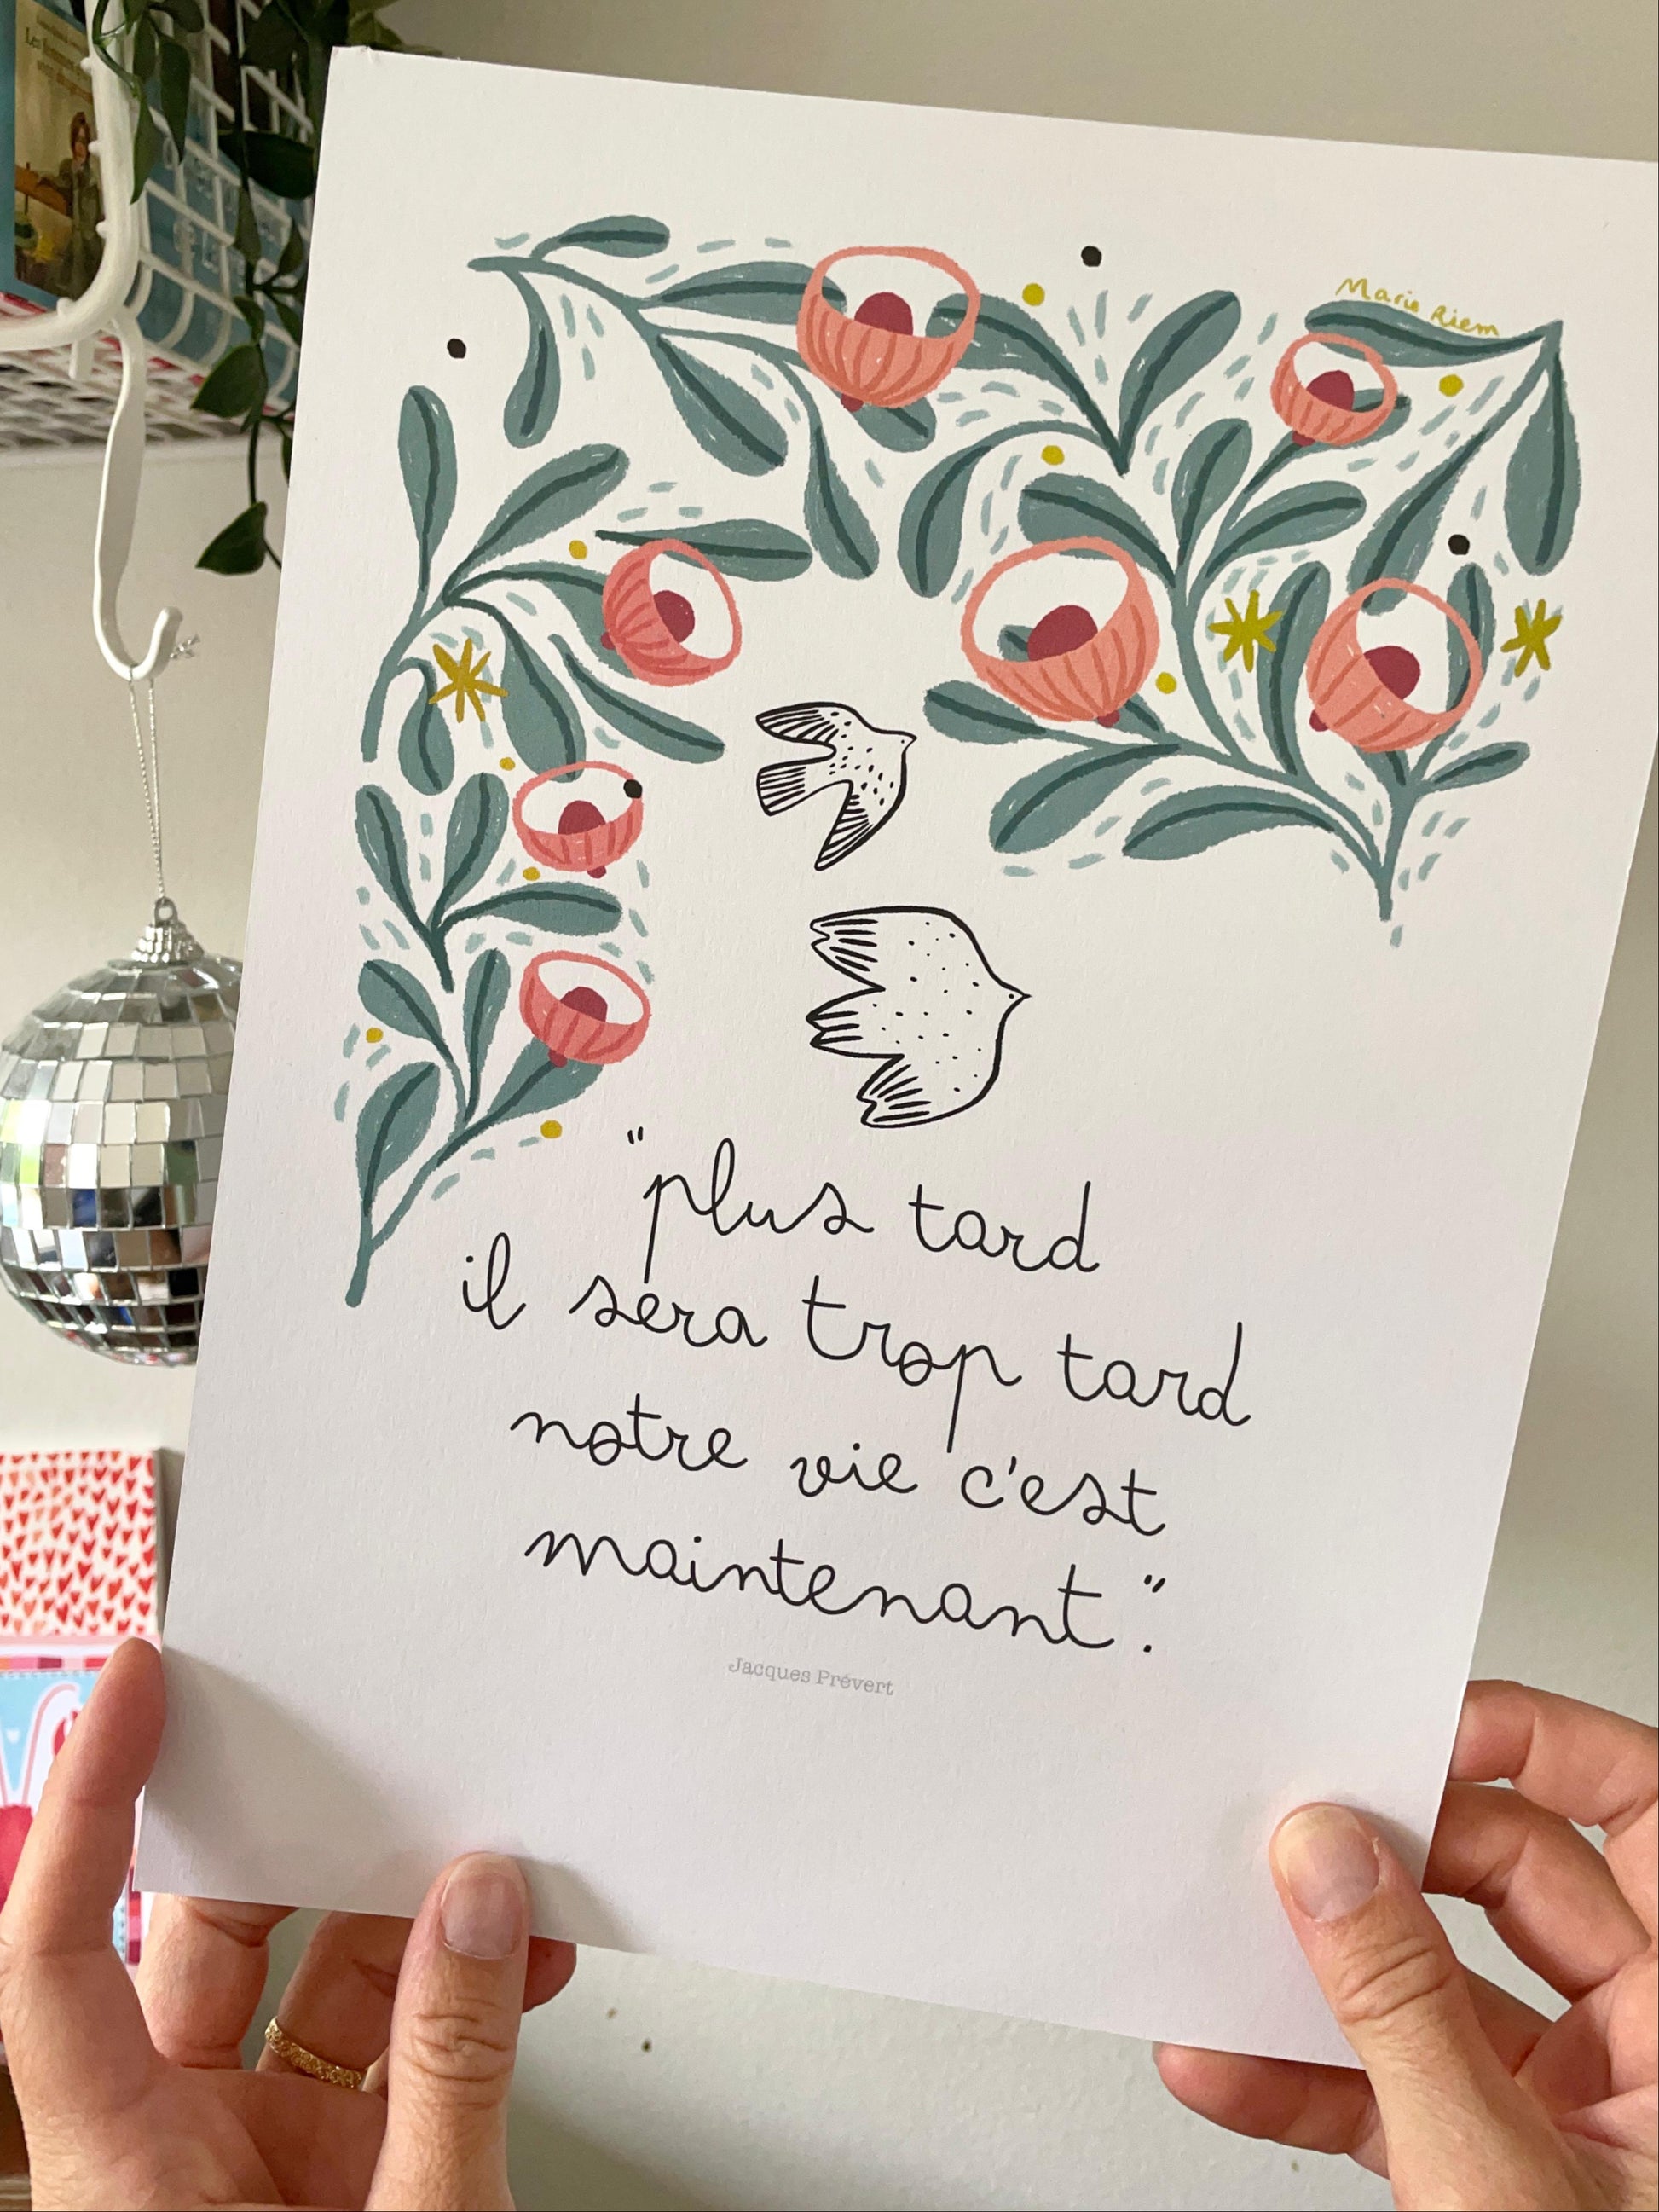 Marie Riem
"plus tard
il sera trop tard
notre vie c'est
maintenant."
Jacques Prévert